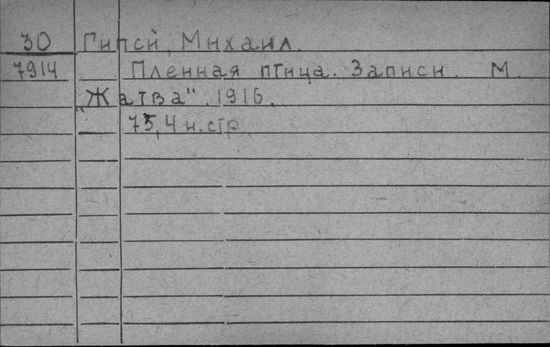 30 Гипси, Михаил.
7914 Пленная птица. Записи. М.
„Жатва". 1916.
75, 4 н. стр.